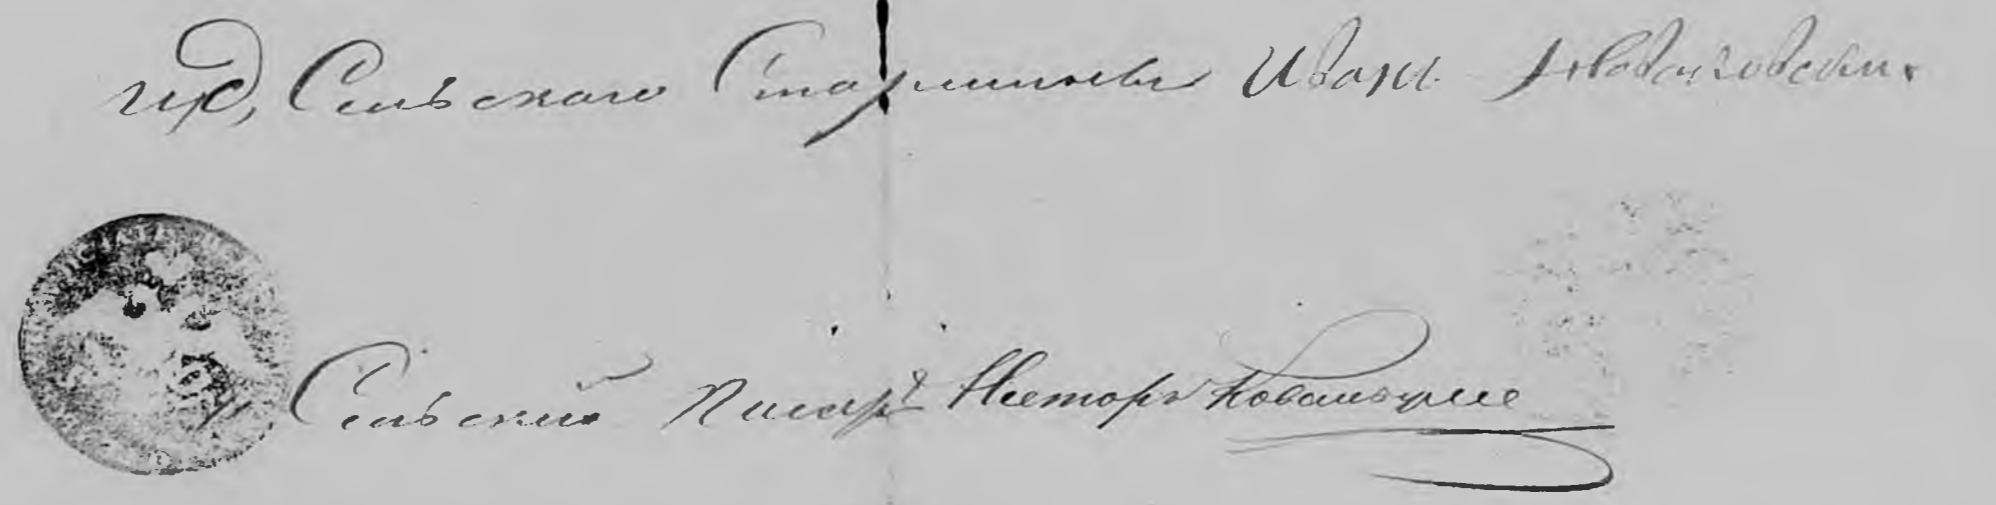 Сельскаго Старшины Иванъ
Сельскій Писарь Несторъ Ковальчукъ